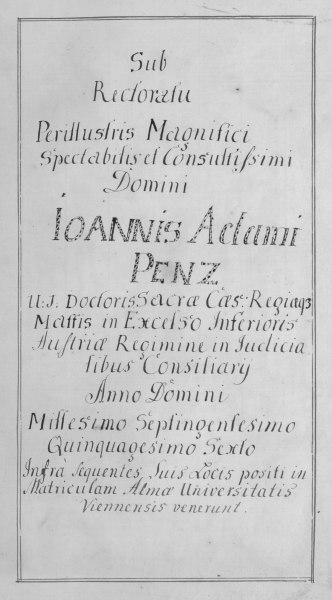 Sub
Rectoratu
Perillustris Magnifici
Spectabilis et Consultissimi
Domini
IOANNIS Adami
PENZ
U: J. Doctoris Sacræ Cæs: Regiæqȝ
Mattis in Excelso Inferioris
Austriæ Regimine in Iudicia
libus Consiliarij
Anno Domini
Millesimo Septingentesimo
Quinquagesimo Sexto
Infrà sequentes, suis Locis positi in
Matriculam Almæ Universitatis
Viennensis venerunt.